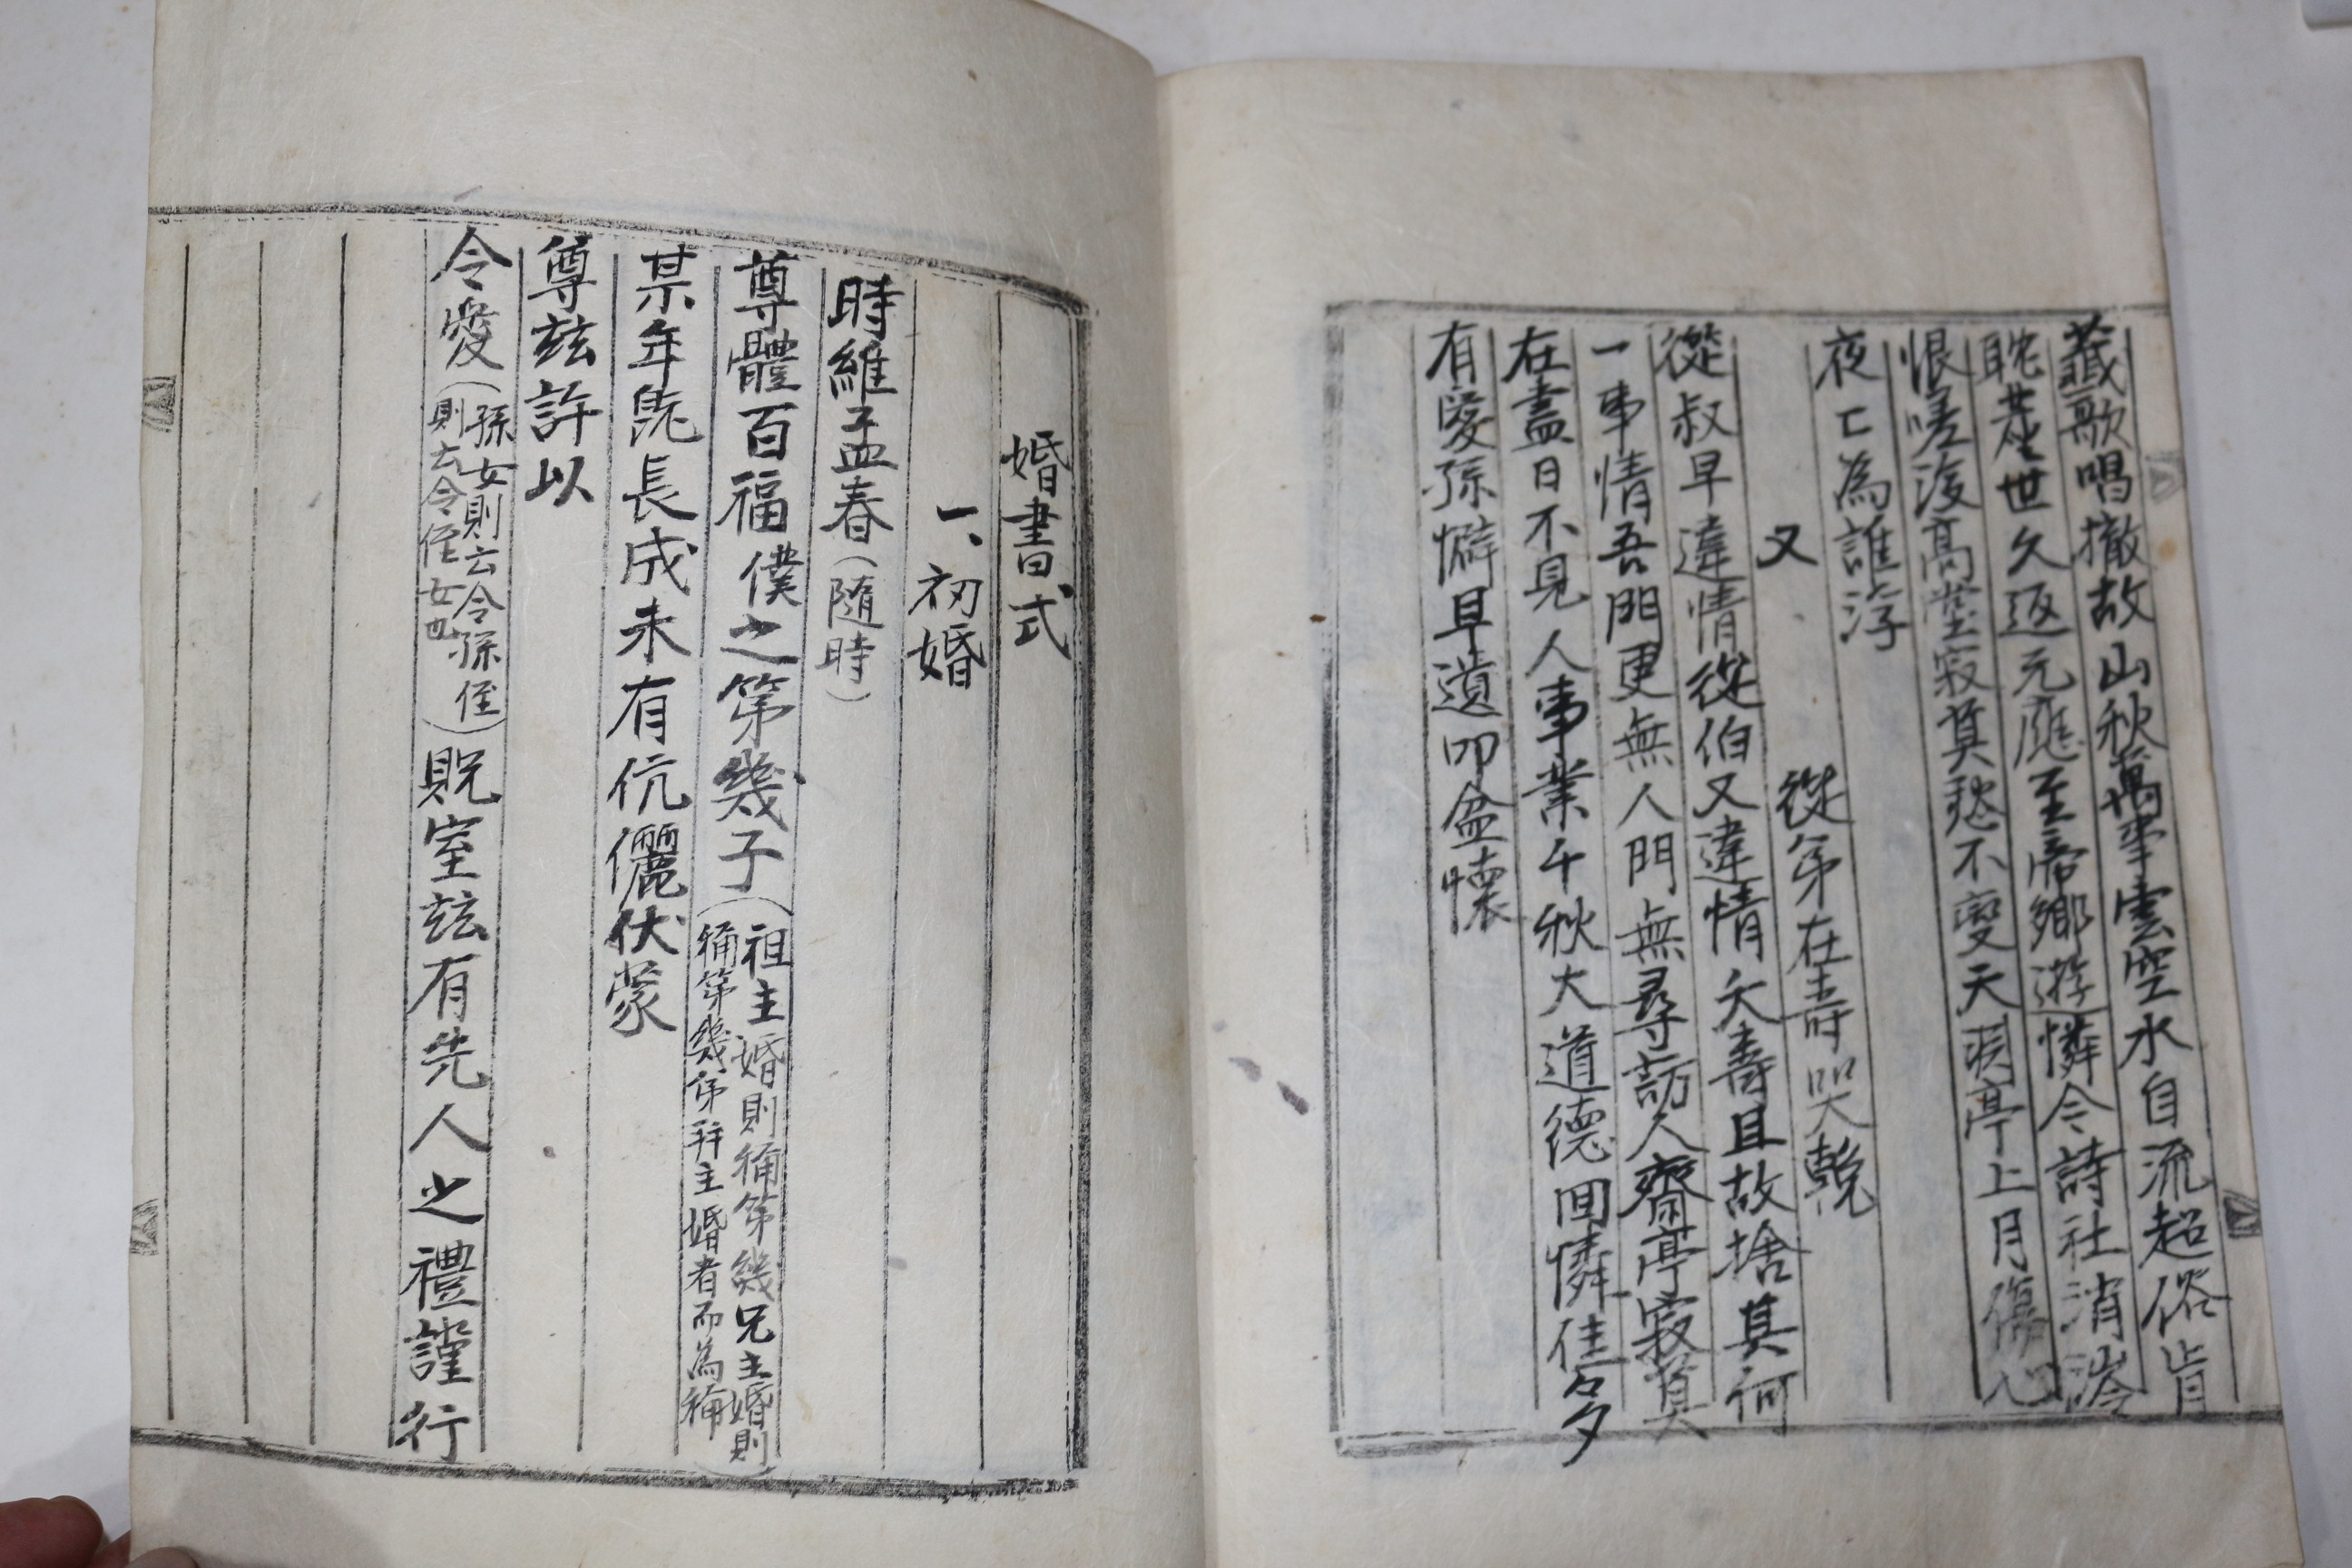 薤歌唱撤故山秋萬事雲空水自流超俗肯
耽楚世久返元應至帝鄕遊憐今詩社消
恨嗟後高堂寂莫愁不變天淚亭上月傷心
夜亡為誰浮
又　從弟在壽哭輓
從叔早違情從伯又違情夭壽且故捨其何
一事情吾門更無人門無尋訪人齋亭寂莫
在盡日不見人事業千秋大道德回憐佳夕
有愛孫懈早遺叩盆懷
婚書式
一、初婚
時維孟春(隨時)
尊體百福僕之第幾子(祖主婚則稱第幾兄主婚則
稱第幾弟幷主婚者而為稱)
某年旣長成未有伉儷伏蒙
尊玆許以
令愛(孫女則云令孫侄
則云令侄女也)貺室玆有先人之禮謹行